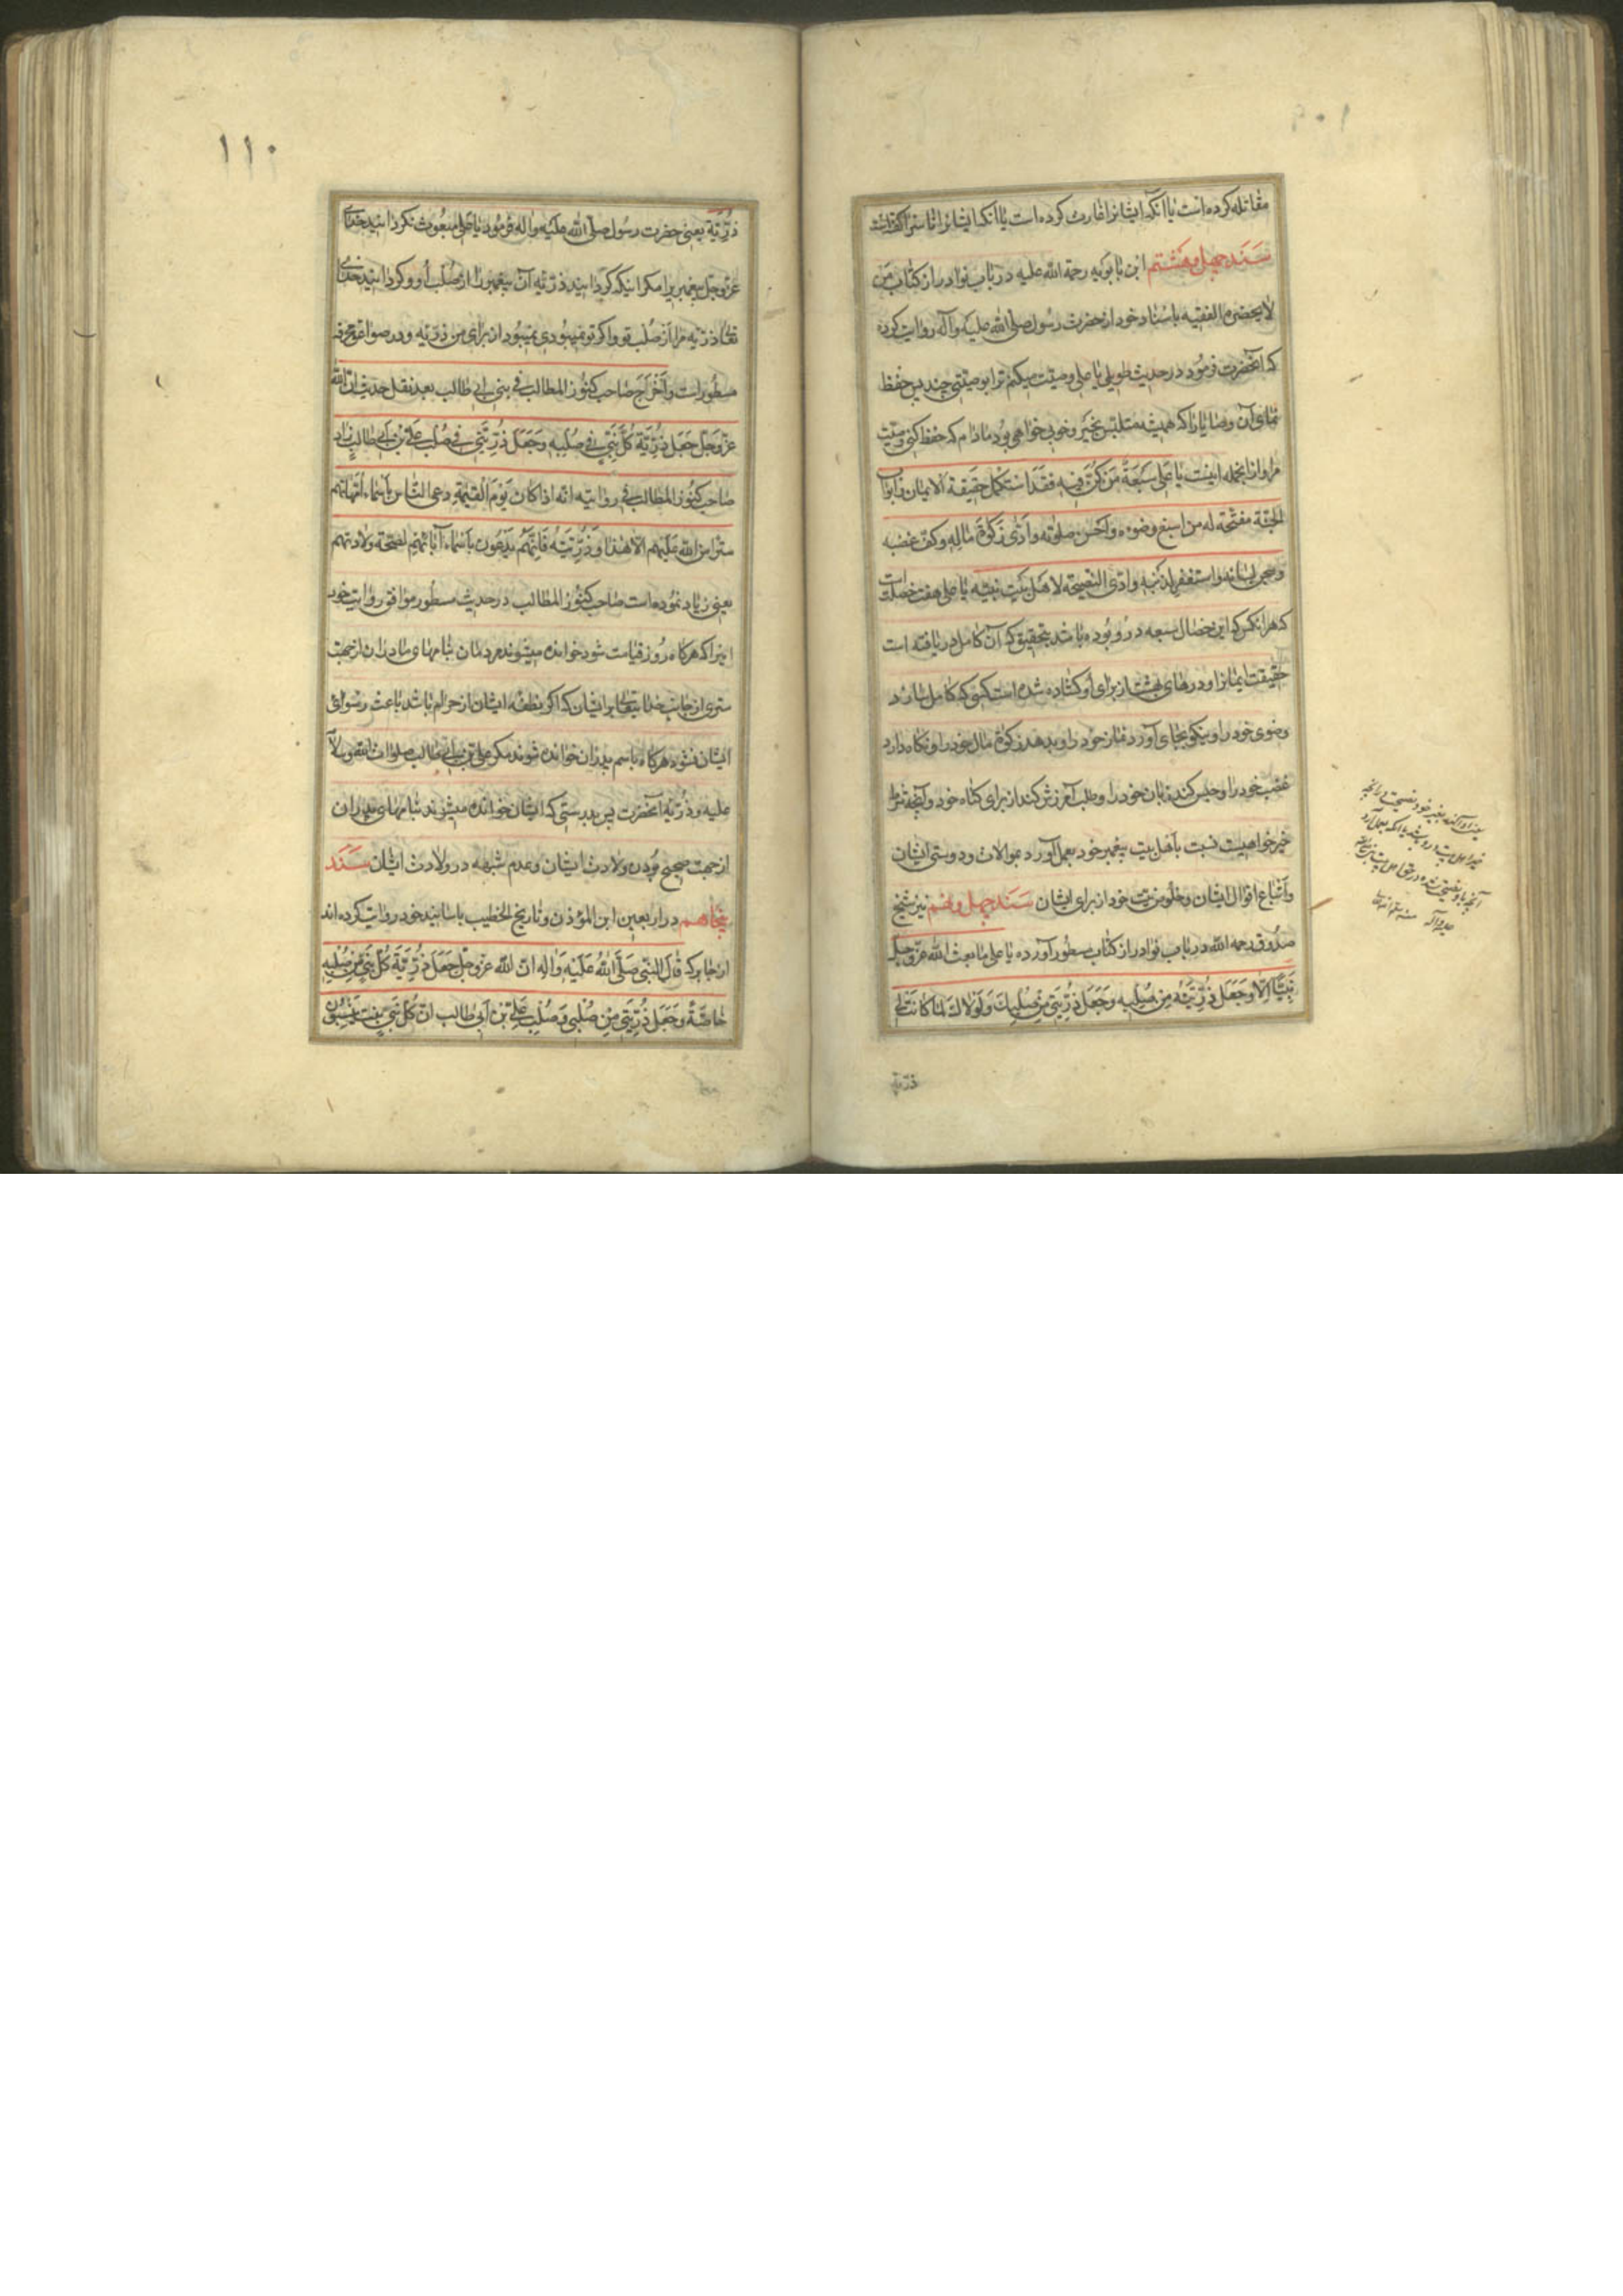 مقاتله کرده است یا آنکه ایشانرا غارت کرده است یا آنکه ایشانرا ناسزا گفته است
سند چهل و هشتم ابن بابویه رحمة الله علیه در باب نوادر از کتاب من
لا یحضره الفقیه باسناد خود از حضرت رسول صلی الله علیه وآله روایت کرده
که آنحضرت فرمود در حدیث طویلی یا علی وصیت میکنم ترا بوصیتی چند پس حفظ
نمای آن وصایا را که همیشه متلبس بخیر و خوبی خواهی بود مادام که حفظ کنی وصیت
مرا و از آنجمله اینست یا علی سبعة من کن فیه فقد استکمل حقیقة الایمان وابواب
الجنة مفتحة له من اسبغ وضوءه واحسن صلوته وادی زکوة ماله وکف غضبه
وسجن لسانه واستغفر لذنبه وادی النصیحة لاهل بیت نبیه یا علی هفت خصلت است
که هر آنکس که این خصال سبعه در و بوده باشد بتحقیق که آن کامل دریافته است
حقیقت ایمانرا و درهای بهشت از برای او گشاده شده است کسی که کامل سازد
وضوی خود را و نیکو بجای آورد نماز خود را و بدهد زکوة مال خود را و نگاه دارد
غضب خود را و حبس کند زبان خود را و طلب آمرزش کند از برای گناه خود و آنچه شرط
خیرخواهیست نسبت باهل بیت پیغمبر خود بعمل آورد بموالات و دوستی ایشان
واتباع اقوال ایشان و خلوص نیت خود از برای ایشان سند چهل و نهم نیز شیخ
صدوق رحمه الله در باب نوادر از کتاب مسطور آورده یا علی ما بعث الله عز وجل
نبیا الا وجعل ذریته من صلبه وجعل ذریتی من صلبک ولولاک لما کانت لی
ذریة
۱۱۰
ذریة یعنی حضرت رسول صلی الله علیه واله فرمود یا علی مبعوث نکردانید خدای
عز وجل پیغمبری را مکر اینکه کردانید ذریه آن پیغمبر را از صلب او و کردانید خدای
تعالی ذریه مرا از صلب تو و اکر تو نمیبودی نمیبود از برای من ذریه و در صواعق محرقه
مسطور است واخرج صاحب کنوز المطالب فی بنی ابی طالب بعد نقل حدیث ان الله
عز وجل جعل ذریة کل نبی فی صلبه وجعل ذریتی فی صلب علی بن ابی طالب زاد
صاحب کنوز المطالب فی روایته انه اذا کان یوم القیمة دعی الناس باسماء امهاتهم
سترا من الله علیهم الا هذا وذریته فانهم یدعون باسماء آبائهم لصحة ولادتهم
یعنی زیاد نموده است صاحب کنوز المطالب در حدیث مسطور موافق روایت خود
اینرا که هرکاه روز قیامت شود خوانده میشوند مردمان بنامهای مادران از جهت
ستری از جانب خدا یتعالی بر ایشان که اکر نطفه ایشان از حرام باشد باعث رسوائی
ایشان نشود هرکاه باسم پدران خوانده شوند مکر علی بن ابی طالب صلوات الله
علیه و ذریه آنحضرت پس بدرستی که ایشان خوانده میشوند بنامهای پدران
از جهت صحیح بودن ولادت ایشان و عدم شبهه در ولادت ایشان سند
پنجاهم در اربعین ابن المؤذن و تاریخ الخطیب باسانید خود روایت کرده اند
از جابر که قال النبی صلی الله علیه واله ان الله عز وجل جعل ذریة کل نبی من صلبه
خاصة وجعل ذریتی من صلبی وصلب علی بن ابی طالب ان کل بنی بنت ینسبون